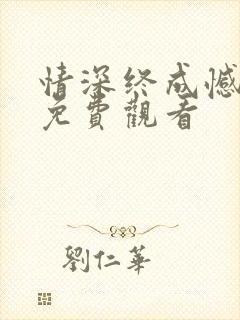 情深终成憾
免費觀看
劉仁華